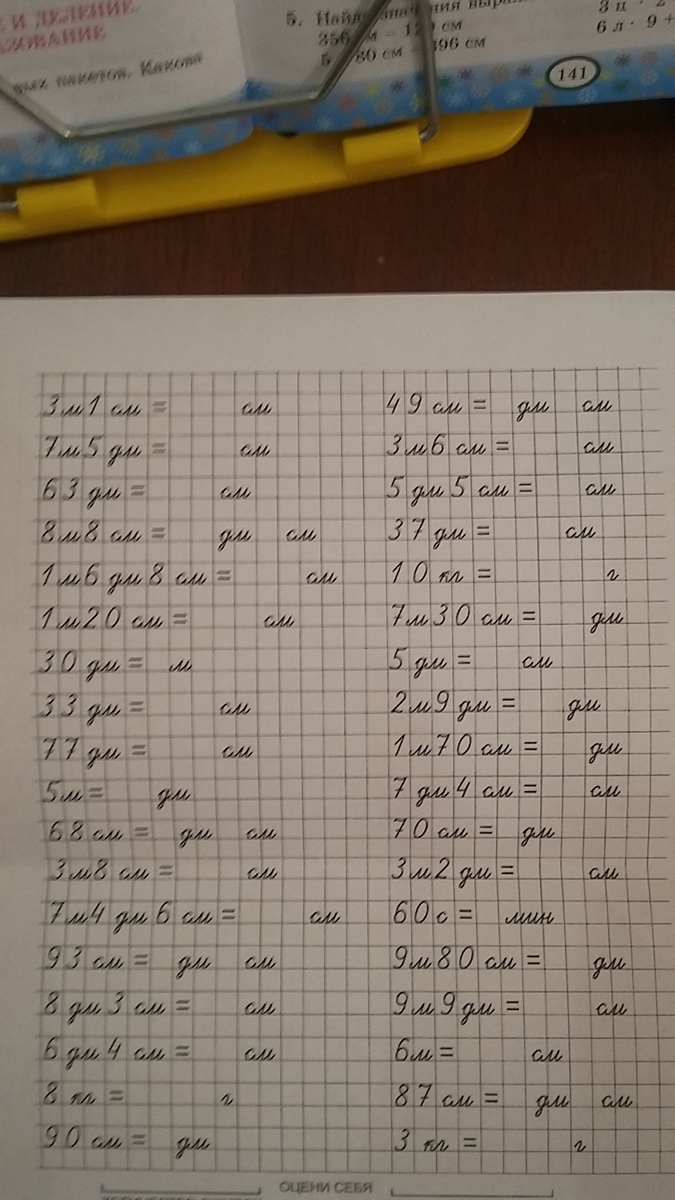 И ДЕЛЕНИЕ.
вых пакетов. Какова
5.
6 л · 9 +
141
3 м 1 см = см
7 м 5 дм = см
63 дм = см
8 м 8 см = дм см
1 м 6 дм 8 см = см
1 м 20 см = см
30 дм = м
33 дм = см
77 дм = см
5 м = дм
68 см = дм см
3 м 8 см = см
7 м 4 дм 6 см = см
93 см = дм см
8 дм 3 см = см
6 дм 4 см = см
8 кг = г
90 см = дм
49 см = дм см
3 м 6 см = см
5 дм 5 см = см
37 дм = см
10 кг = г
7 м 30 см = дм
5 дм = см
2 м 9 дм = дм
1 м 70 см = дм
7 дм 4 см = см
70 см = дм
3 м 2 дм = см
60 с = мин
9 м 80 см = дм
9 м 9 дм = см
6 м = см
87 см = дм см
3 кг = г
ОЦЕНИ СЕБЯ